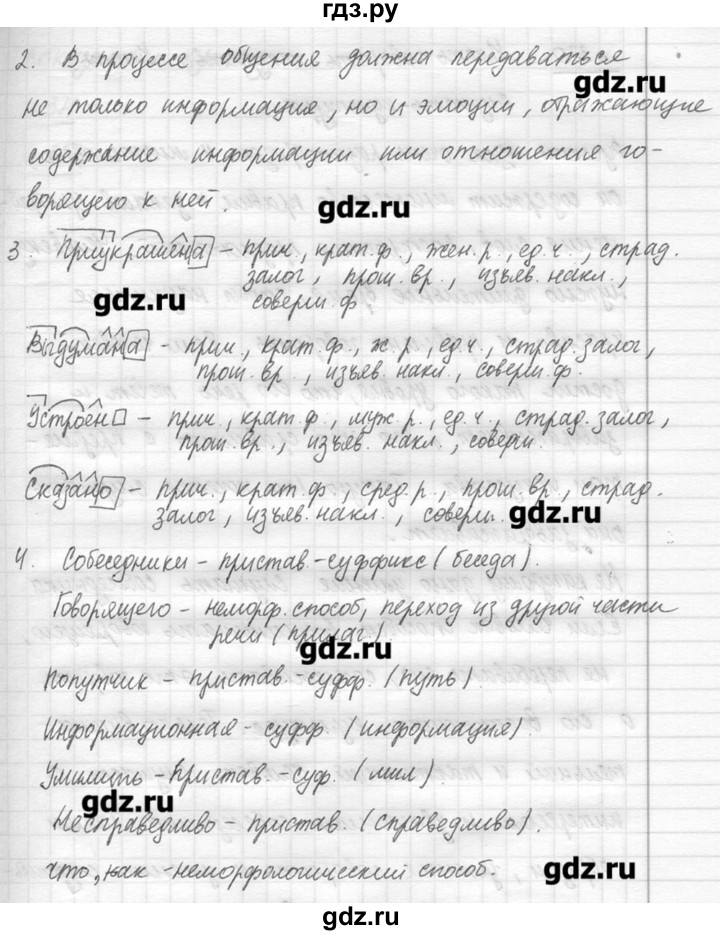 гдз.ру
2. В процессе общения должна передаваться
gdz.ru
не только информация, но и эмоции, отражающие
содержание информации или отношения го-
ворящего к ней.
gdz.ru
3. Приукрашена – прич., крат.ф., жен.р., ед.ч., страд.
залог, прош.вр., изъяв.накл.,
gdz.ru
соверш.ф
Выдумана – прич., крат.ф., ж.р., ед.ч., страд.залог,
прош.вр., изъяв.накл., соверш.ф.
Устроен – прич., крат.ф., муж.р., ед.ч., страд.залог,
прош.вр., изъяв.накл., соверш.
Сказано – прич., крат.ф., сред.р., прош.вр., страд.
залог, изъяв.накл., соверш.
gdz.ru
4. Собеседники – пристав.-суффикс (беседа).
Говорящего – неморф.способ, переход из другой части
речи (прилаг)
gdz.ru
Попутчик – пристав.-суфф. (путь).
Информационная – суфф. (информация).
Умилишь – пристав.-суф. (мил).
gdz.ru
Несправедливо – пристав. (справедливо).
что, как – неморфологический способ.
gdz.ru
gdz.ru